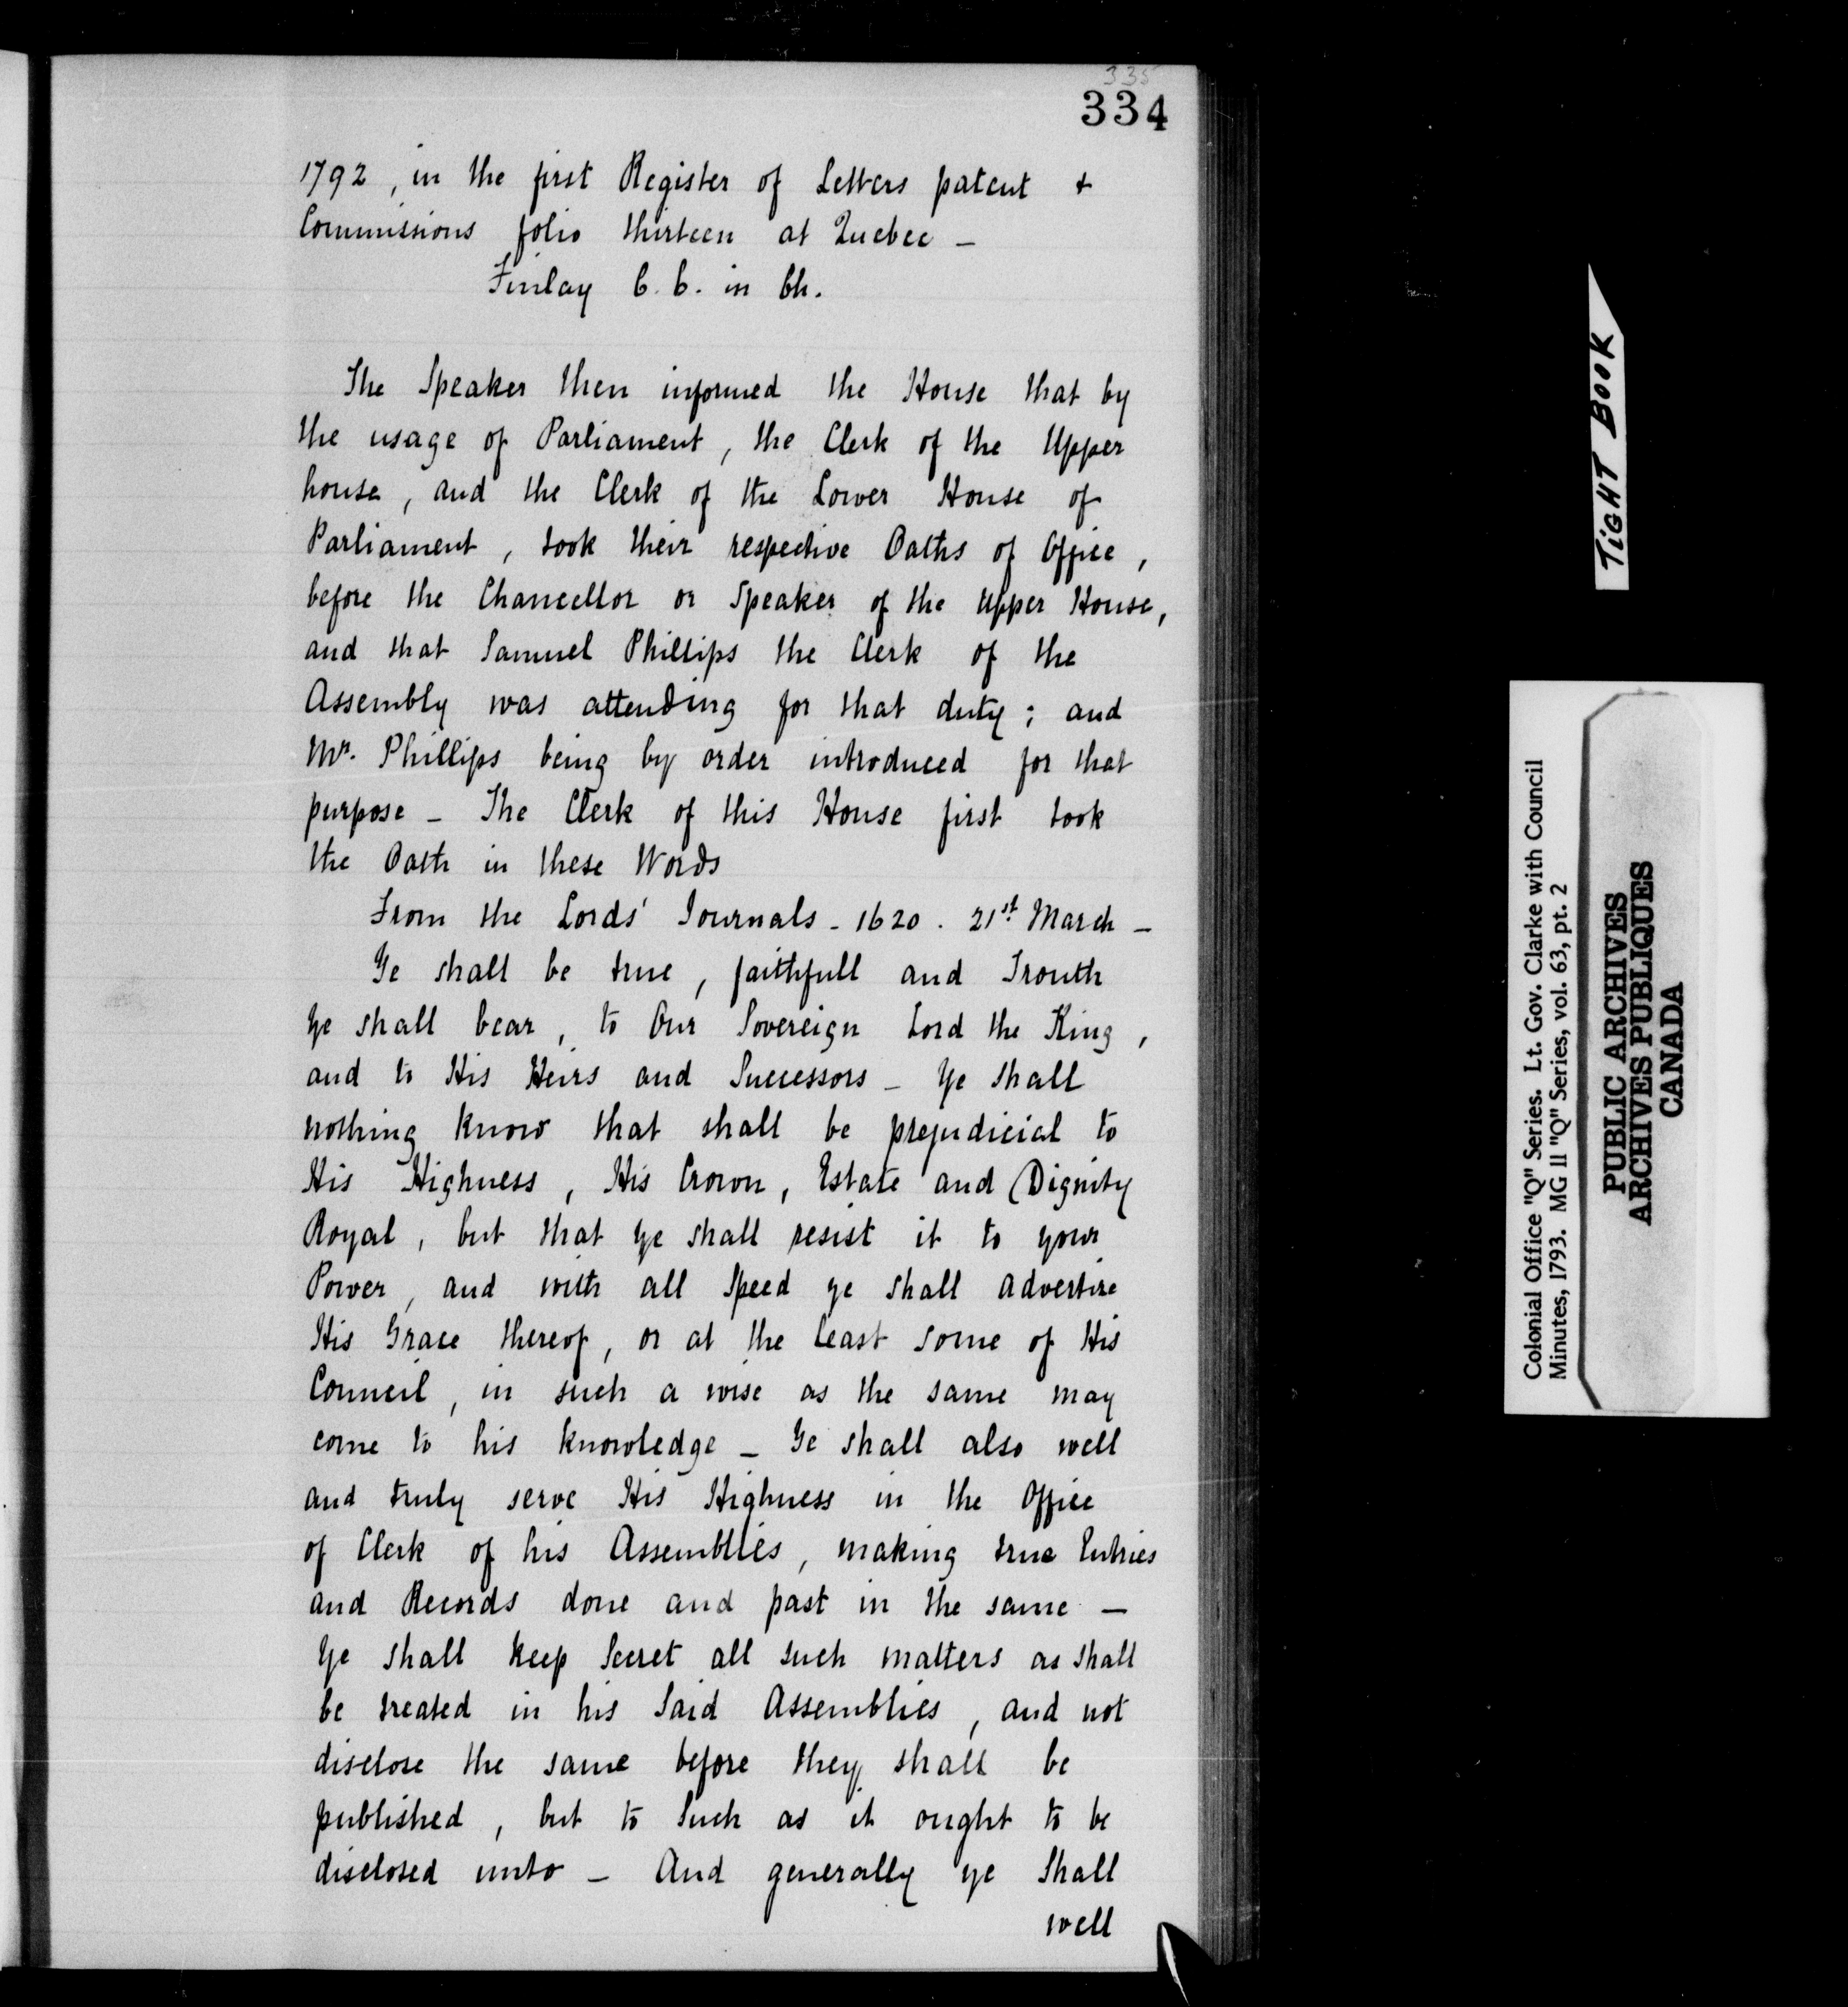 335
334
1792, in the first Register of Letters patent &
Commissions folio thirteen at Quebec —
Finlay C. C. in Ch.
The Speaker then informed the House that by
the usage of Parliament, the Clerk of the Upper
house, and the Clerk of the Lower House of
Parliament, took their respective Oaths of Office,
before the Chancellor or Speaker of the Upper House,
and that Samuel Phillips the Clerk of the
Assembly was attending for that duty; and
Mr. Phillips being by order introduced for that
purpose — The Clerk of this House first took
the Oath in these Words
From the Lords' Journals - 1620. 21st March —
Ye shall be true, faithfull and Trouth
ye shall bear, to Our Sovereign Lord the King,
and to His Heirs and Successors — Ye shall
nothing know that shall be prejudicial to
His Highness, His Crown, Estate and Dignity
Royal, but that ye shall resist it to your
Power, and with all Speed ye shall advertize
His Grace thereof, or at the least some of His
Council, in such a wise as the same may
come to his knowledge — Ye shall also well
and truly serve His Highness in the Office
of Clerk of his Assemblies, making true Entries
and Records done and past in the same —
Ye shall keep Secret all such matters as shall
be treated in his Said Assemblies, and not
disclose the same before they shall be
published, but to Such as it ought to be
disclosed unto — And generally ye Shall
well
TIGHT BOOK
Colonial Office "Q" Series. Lt. Gov. Clarke with Council
Minutes, 1793. MG 11 "Q" Series, vol. 63, pt. 2
PUBLIC ARCHIVES
ARCHIVES PUBLIQUES
CANADA